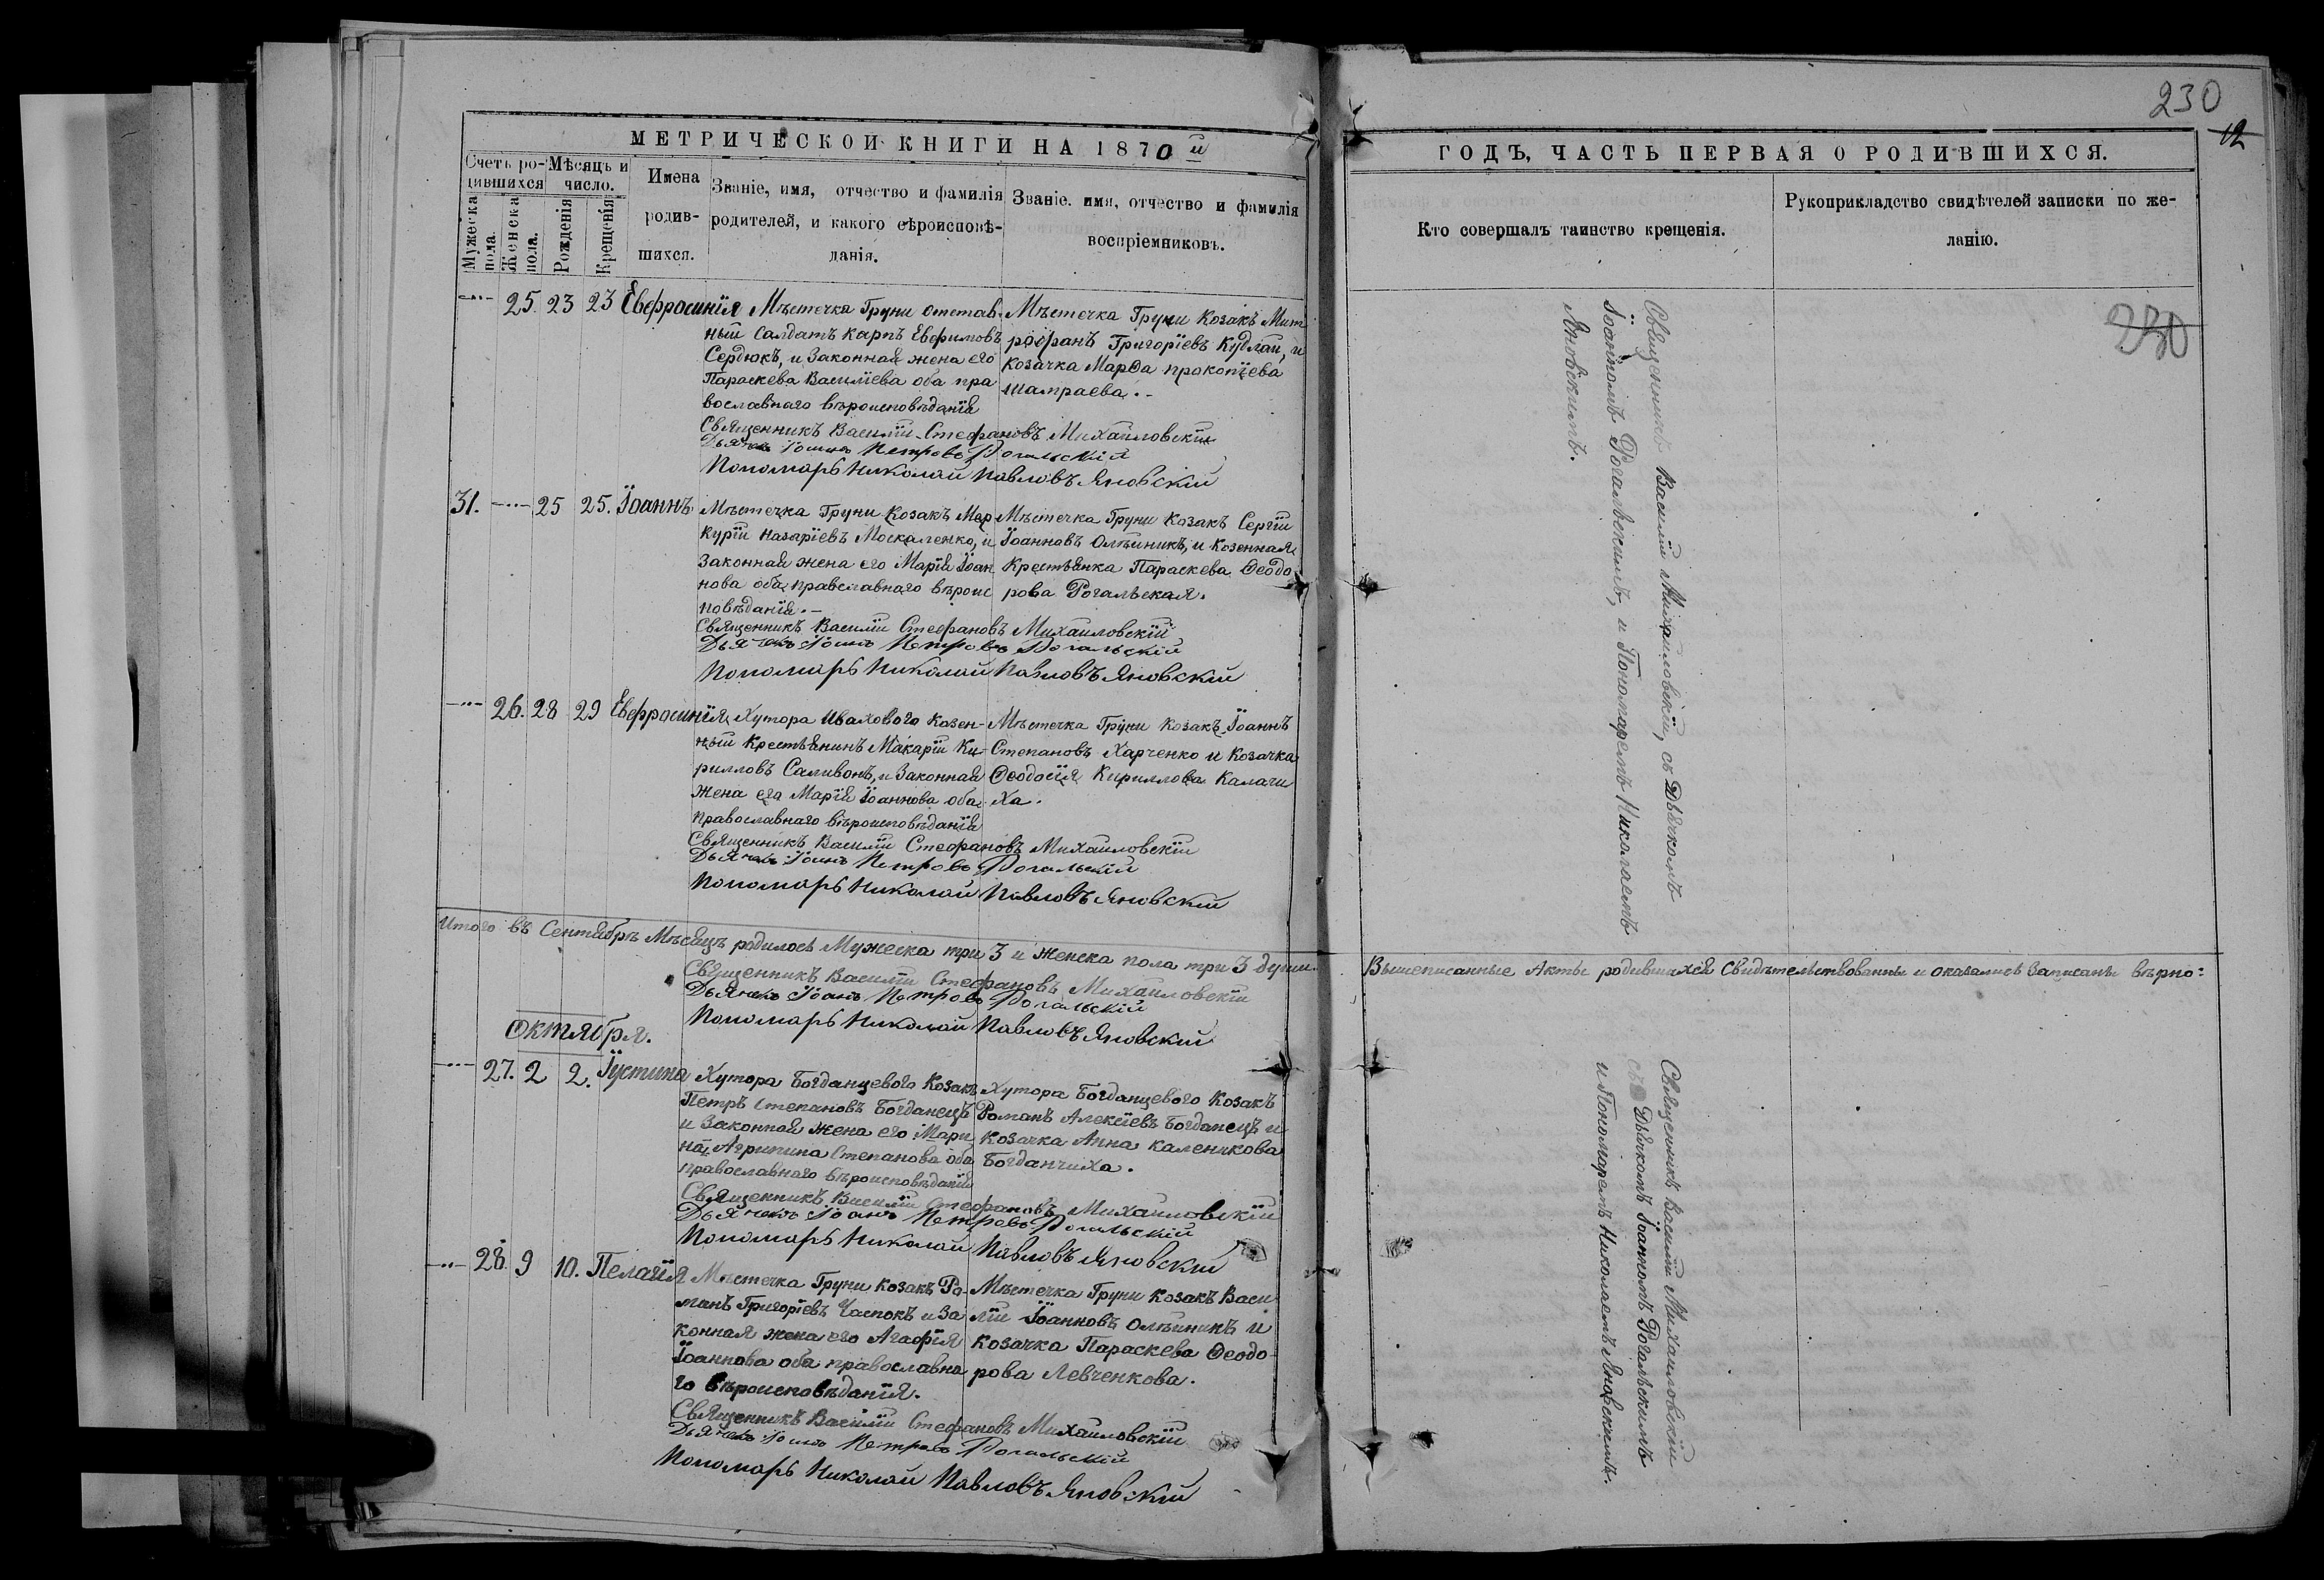 МЕТРИЧЕСКОЙ КНИГИ НА 1870й
Счетъ ро-
дившихся
Мѣсяцъ и
число.
Мужеска
пола.
Женска
пола.
Рожденія
Крещенія
Имена
родив-
шихся.
Званіе, имя, отчество и фамилія
родителей, и какого вѣроисповѣ-
данія.
Званіе, имя, отчество и фамилія
воспріемниковъ.
25. 23 23 Евфросинія
Мѣстечка Груни отстав-
ный Салдатъ Карпъ Евфимовъ
Сердюкъ, и Законная жена его
Параскева Василіева оба пра
вославнаго вѣроисповѣданія
Мѣстечка Груни Козакъ Мит
рофанъ Григоріевъ Кудлай, и
Козачка Марѳа прокопіева
Шатраева.
Священникъ Василій Стефановъ Михайловскій
Дьячекъ Іоанъ Петровъ Рогальскій
Пономарь Николай Павловъ Яновскій
31. 25 25. Іоаннъ
Мѣстечка Груни Козакъ Мер
курій Назаріевъ Москаленко, и
Законная жена его Марія Іоан
нова оба православнаго вѣроис
повѣданія.
Мѣстечка Груни Козакъ Сергій
Іоанновъ Олѣйникъ, и Козенная
Крестьянка Параскева Ѳеодо
рова Рогальская.
Священникъ Василій Стефановъ Михайловскій
Дьячекъ Іоанъ Петровъ Рогальскій
Пономарь Николай Павловъ Яновскій
26. 28 29 Евфросинія
Хутора Ивахового Козен-
ный Крестьянинъ Макарій Ки-
рилловъ Саливонъ, и Законная
жена его Марія Іоаннова оба
православнаго вѣроисповѣданія
Мѣстечка Груни Козакъ Іоаннъ
Степановъ Харченко и Козачка
Ѳеодосія Кириллова Калачи
ха.
Священникъ Василій Стефановъ Михайловскій
Дьячекъ Іоанъ Петровъ Рогальскій
Пономарь Николай Павловъ Яновскій
Итого въ Сентябрѣ Мѣсяцъ родилось Мужеска три 3 и Женска пола три 3 души.
Священникъ Василій Стефановъ Михайловскій
Дьячекъ Іоанъ Петровъ Рогальскій
Пономарь Николай Павловъ Яновскій
Октября.
27. 2 2. Іустина
Хутора Богданцевого Козакъ
Петръ Степановъ Богданецъ
и Законная жена его
Агрипина Степанова оба
православнаго вѣроисповѣданія
Хутора Богданцевого Козакъ
Романъ Алексіевъ Богданецъ и
Козачка Анна Каленикова
Богданчиха.
Священникъ Василій Стефановъ Михайловскій
Дьячекъ Іоанъ Петровъ Рогальскій
Пономарь Николай Павловъ Яновскій
28. 9 10. Пелагія
Мѣстечка Груни Козакъ Ро-
манъ Григоріевъ Часпокъ и За
конная жена его Агафія
Іоаннова оба православна
го вѣроисповѣданія.
Мѣстечка Груни Козакъ Васи
лій Іоанновъ Олѣйникъ и
Козачка Параскева Ѳеодо-
рова Левченкова.
Священникъ Василій Стефановъ Михайловскій
Дьячекъ Іоанъ Петровъ Рогальскій
Пономарь Николай Павловъ Яновскій
230
12
ГОДЪ, ЧАСТЬ ПЕРВАЯ О РОДИВШИХСЯ.
Кто совершалъ таинство крещенія.
Рукоприкладство свидѣтелей записки по же-
ланію.
230
Священникъ Василій Михайловскій, съ Дьячкомъ
Іоанномъ Рогальскимъ, и Пономаремъ Николаемъ
Яновскимъ.
Вышеписанные Акты родившихся Свидѣтельствованны и оказались Записаны вѣрно:
Священникъ Василій Михайловскій
съ Дьячкомъ Іоанномъ Рогальскимъ
и Пономаремъ Николаемъ Яновскимъ.